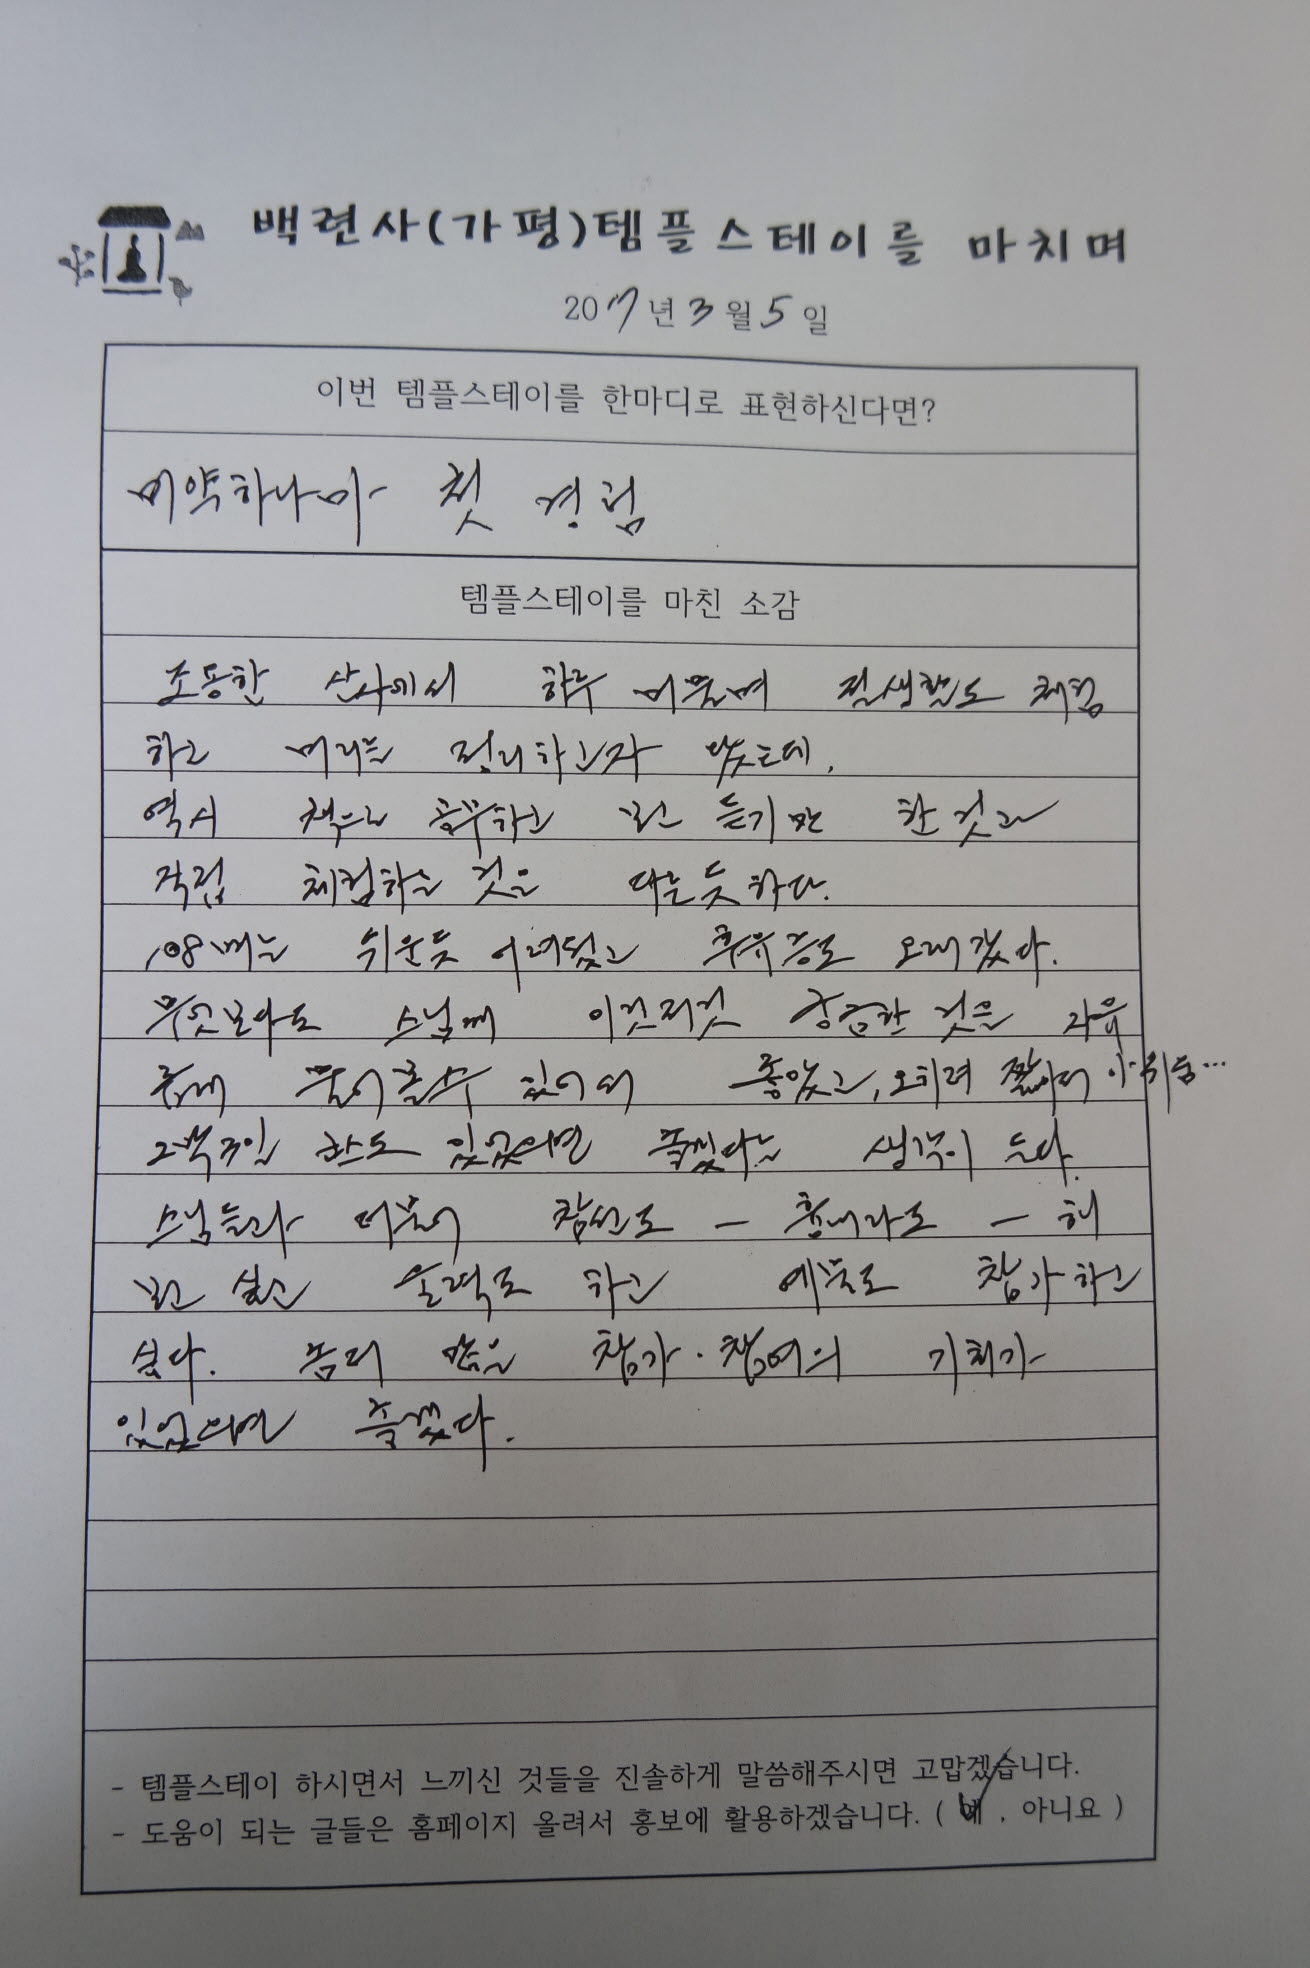 백련사(가평)템플스테이를 마치며
2017년 3월 5일
이번 템플스테이를 한마디로 표현하신다면?
미약하나마 첫 경험
템플스테이를 마친 소감
조용한 산사에서 하루 머물며 절생활도 체험
하고 머리도 정리하고자 왔는데,
역시 책으로 공부하고 보고 듣기만 한 것과
직접 체험하는 것은 다른 듯 하다.
108배는 쉬운듯 어려웠고 후유증도 오래 갔다.
무엇보다도 스님께 이것저것 궁금한 것을 자유
롭게 물어볼 수 있어서 좋았고, 오히려 짧아서 아쉬움...
2박3일 코스도 있었으면 좋겠다는 생각이 든다.
스님들과 더불어 참선도 - 흉내라도 - 해
보고 싶고 울력도 하고 예불도 참가하고
싶다. 좀더 많은 참가·참여의 기회가
있었으면 좋겠다.
- 템플스테이 하시면서 느끼신 것들을 진솔하게 말씀해주시면 고맙겠습니다.
- 도움이 되는 글들은 홈페이지 올려서 홍보에 활용하겠습니다. ( 네 , 아니요 )